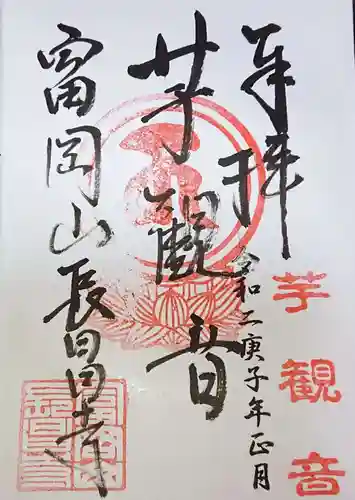 奉拝
令和二庚子年正月
芋観音
芋観音
富岡山長昌寺